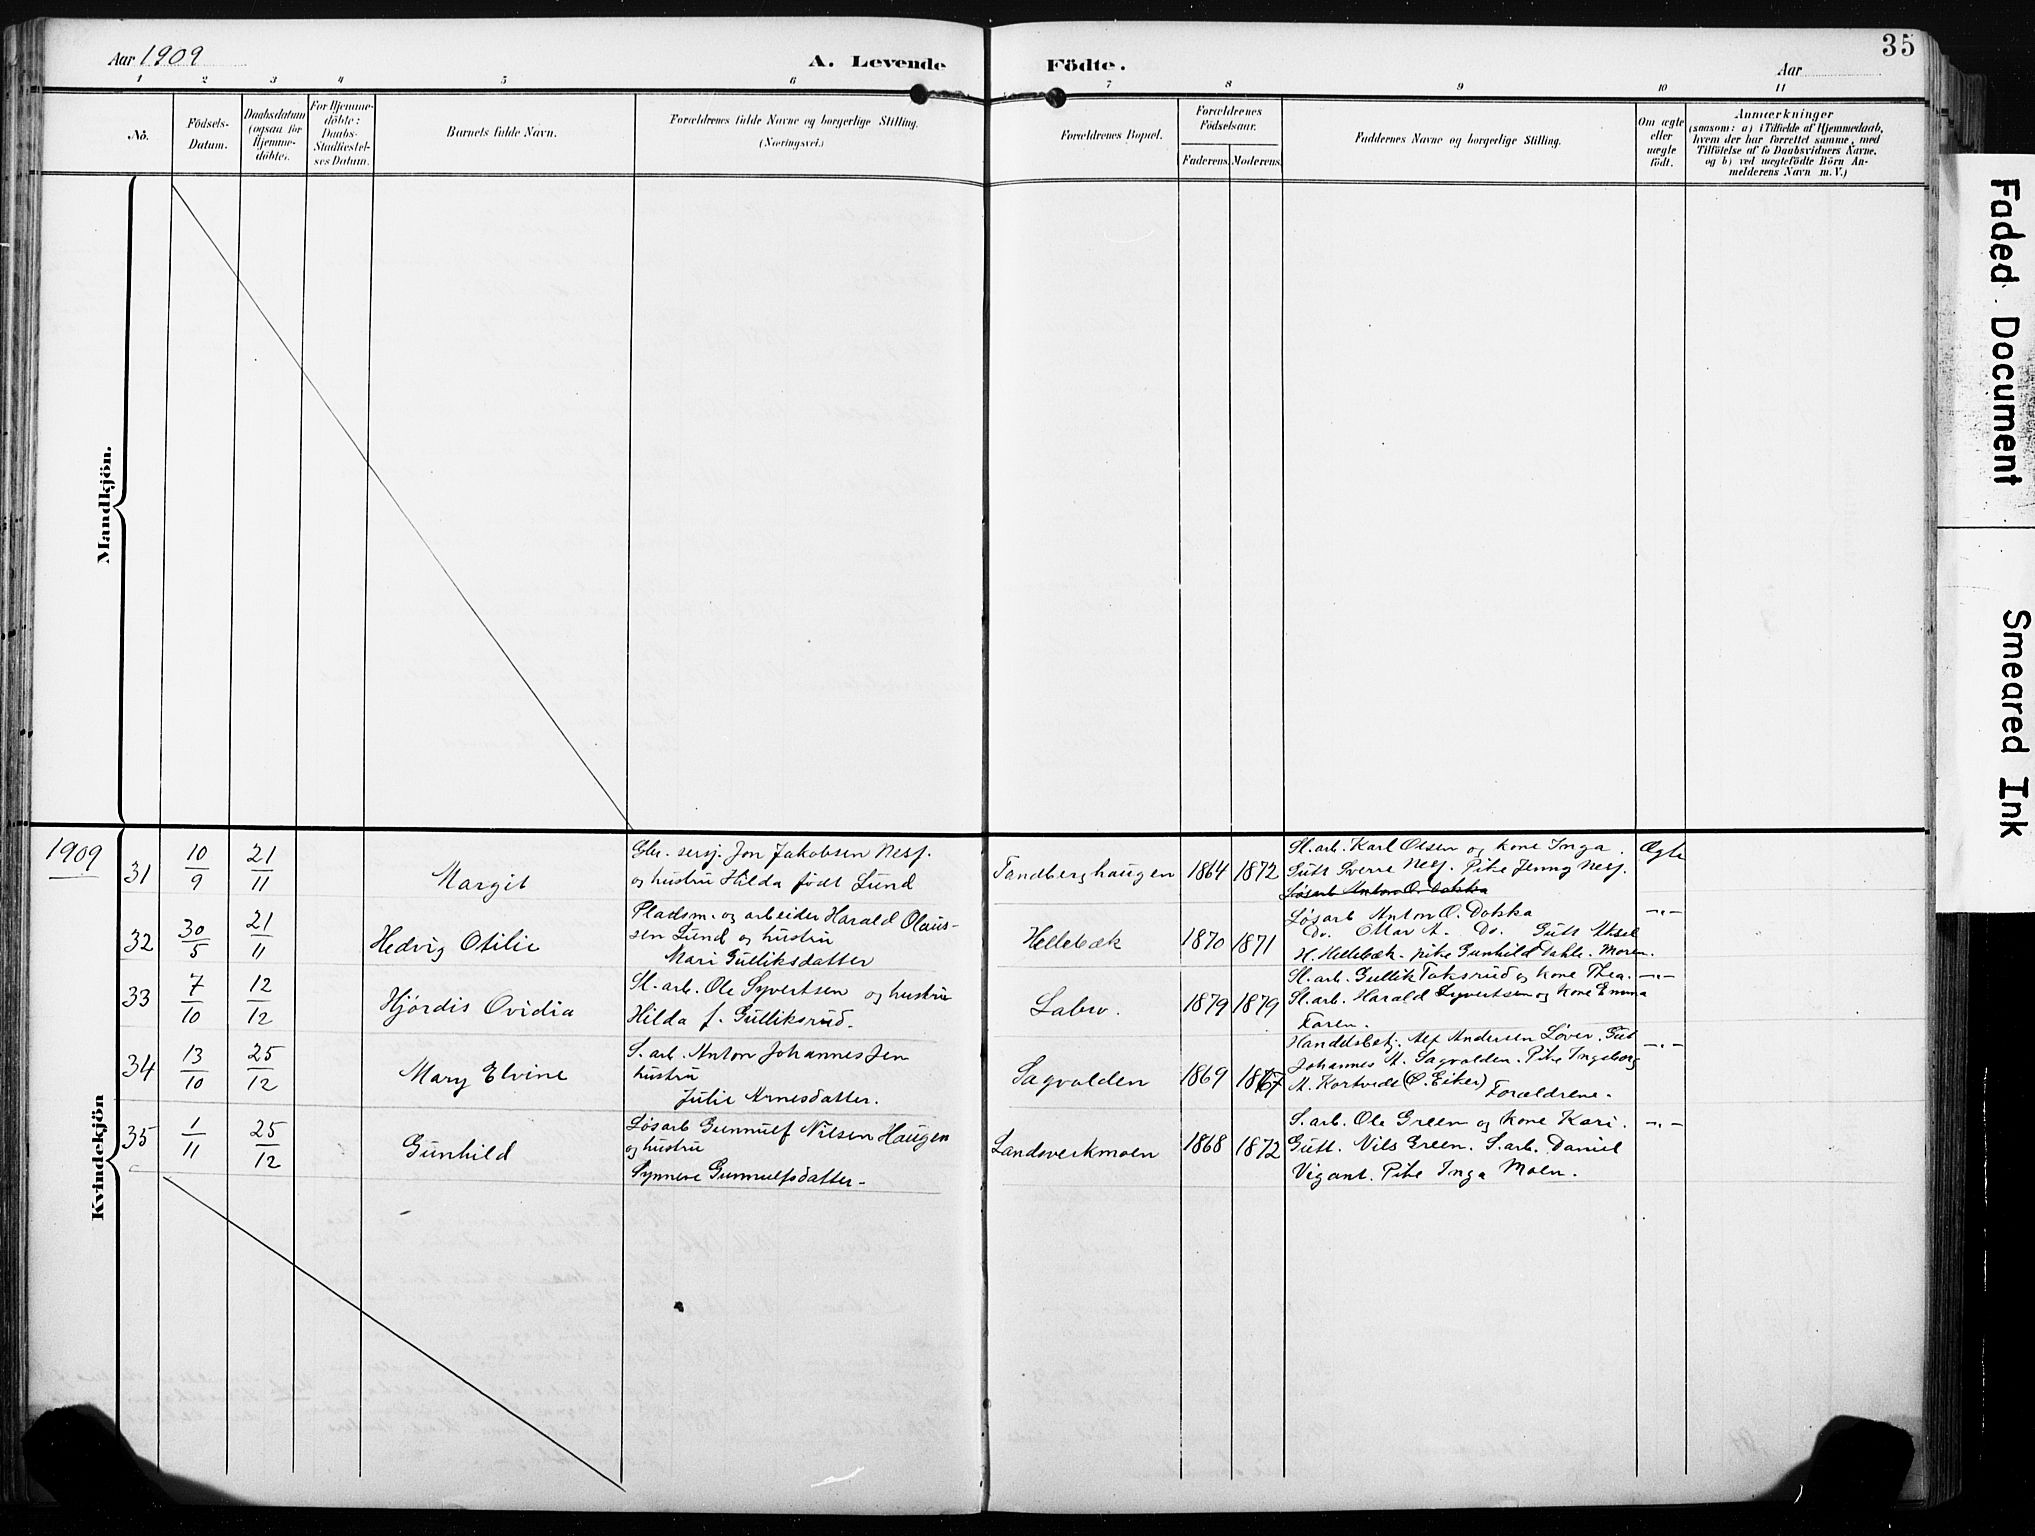 35
Aar 1909
A. Levende Födte.
Aar
1 2 3 4 5 6 7 8 9 10 11
Nó.
Födsels-
Datum.
Daabsdatum
(ogsaa för
Hjemme-
döbte).
For Hjemme-
döbte:
Daabs-
Stadfæstel-
ses Datum.
Barnets fulde Navn.
Forældrenes fulde Navne og borgerlige Stilling.
(Næringsvei.)
Forældrenes Bopæl.
Forældrenes
Födselsaar.
Faderens. Moderens.
Faddernes Navne og borgerlige Stilling.
Om ægte
eller
uægte
födt.
Anmærkninger
(saasom: a) i Tilfælde af Hjemmedaab,
hvem der har forrettet samme, med
Tilföielse af to Daabsvidners Navne.
og b) ved uægtefödte Börn An-
melderens Navn m. V.)
Mandkjön.
Kvindekjön
1909
31
10/9
21/11
Margit
Jon Jakobsen Nesj.
og hustru Hilda født Lund
Tandberghaugen
1864 1872
Sl. arb. Karl Olsen og kone Inga.
Gutt Sverre Nesj. Pike Jenny Nesj.
Løsarb Anton O. Dokka
Ægte
32
30/5
21/11
Hedvig Otilie
Pladsm. og arbeider Harald Olaus-
sen Lund og hustru
Mari Gulliksdatter
Hellebæk
1870 1871
Løsarb Anton O. Dokka
Do. Ottar A. Do. Gutt Aksel
H. Hellebæk. pike Gunhild Dahle. Moren.
-"-
33
7/10
12/12
Hjördis Ovidia
Sl. arb. Ole Syvertsen og hustru
Hilda f. Gulliksrud.
Labro.
1879 1879
Sl. arb. Gullik Toksrud og kone Thea.
Sl. arb. Harald Syvertsen og kone Emma
Faren.
-"-
34
13/10
25/12
Mary Elvine
S. arb. Anton Johannes Jen
hustru
Julie Arnesdatter.
Sagvolden
1869 1867
Handelsbetj. Alf Andersen Løver. Gut
Johannes A. Sagvolden. Pike Ingeborg
A. Kortvedt (Ö. Eiker) Forældrene.
-"-
35
1/11
25/12
Gunhild
Løsarb Gunnulf Nilsen Haugen
og hustru
Synneve Gunnulfsdatter-
Landsverkmoen
1868 1872
S. arb. Ole Green og kone Kari.
Gutt. Nils Green. S. arb. Daniel
Vigant. Pike Inga Moen.
-"-
Faded Document
Smeared Ink